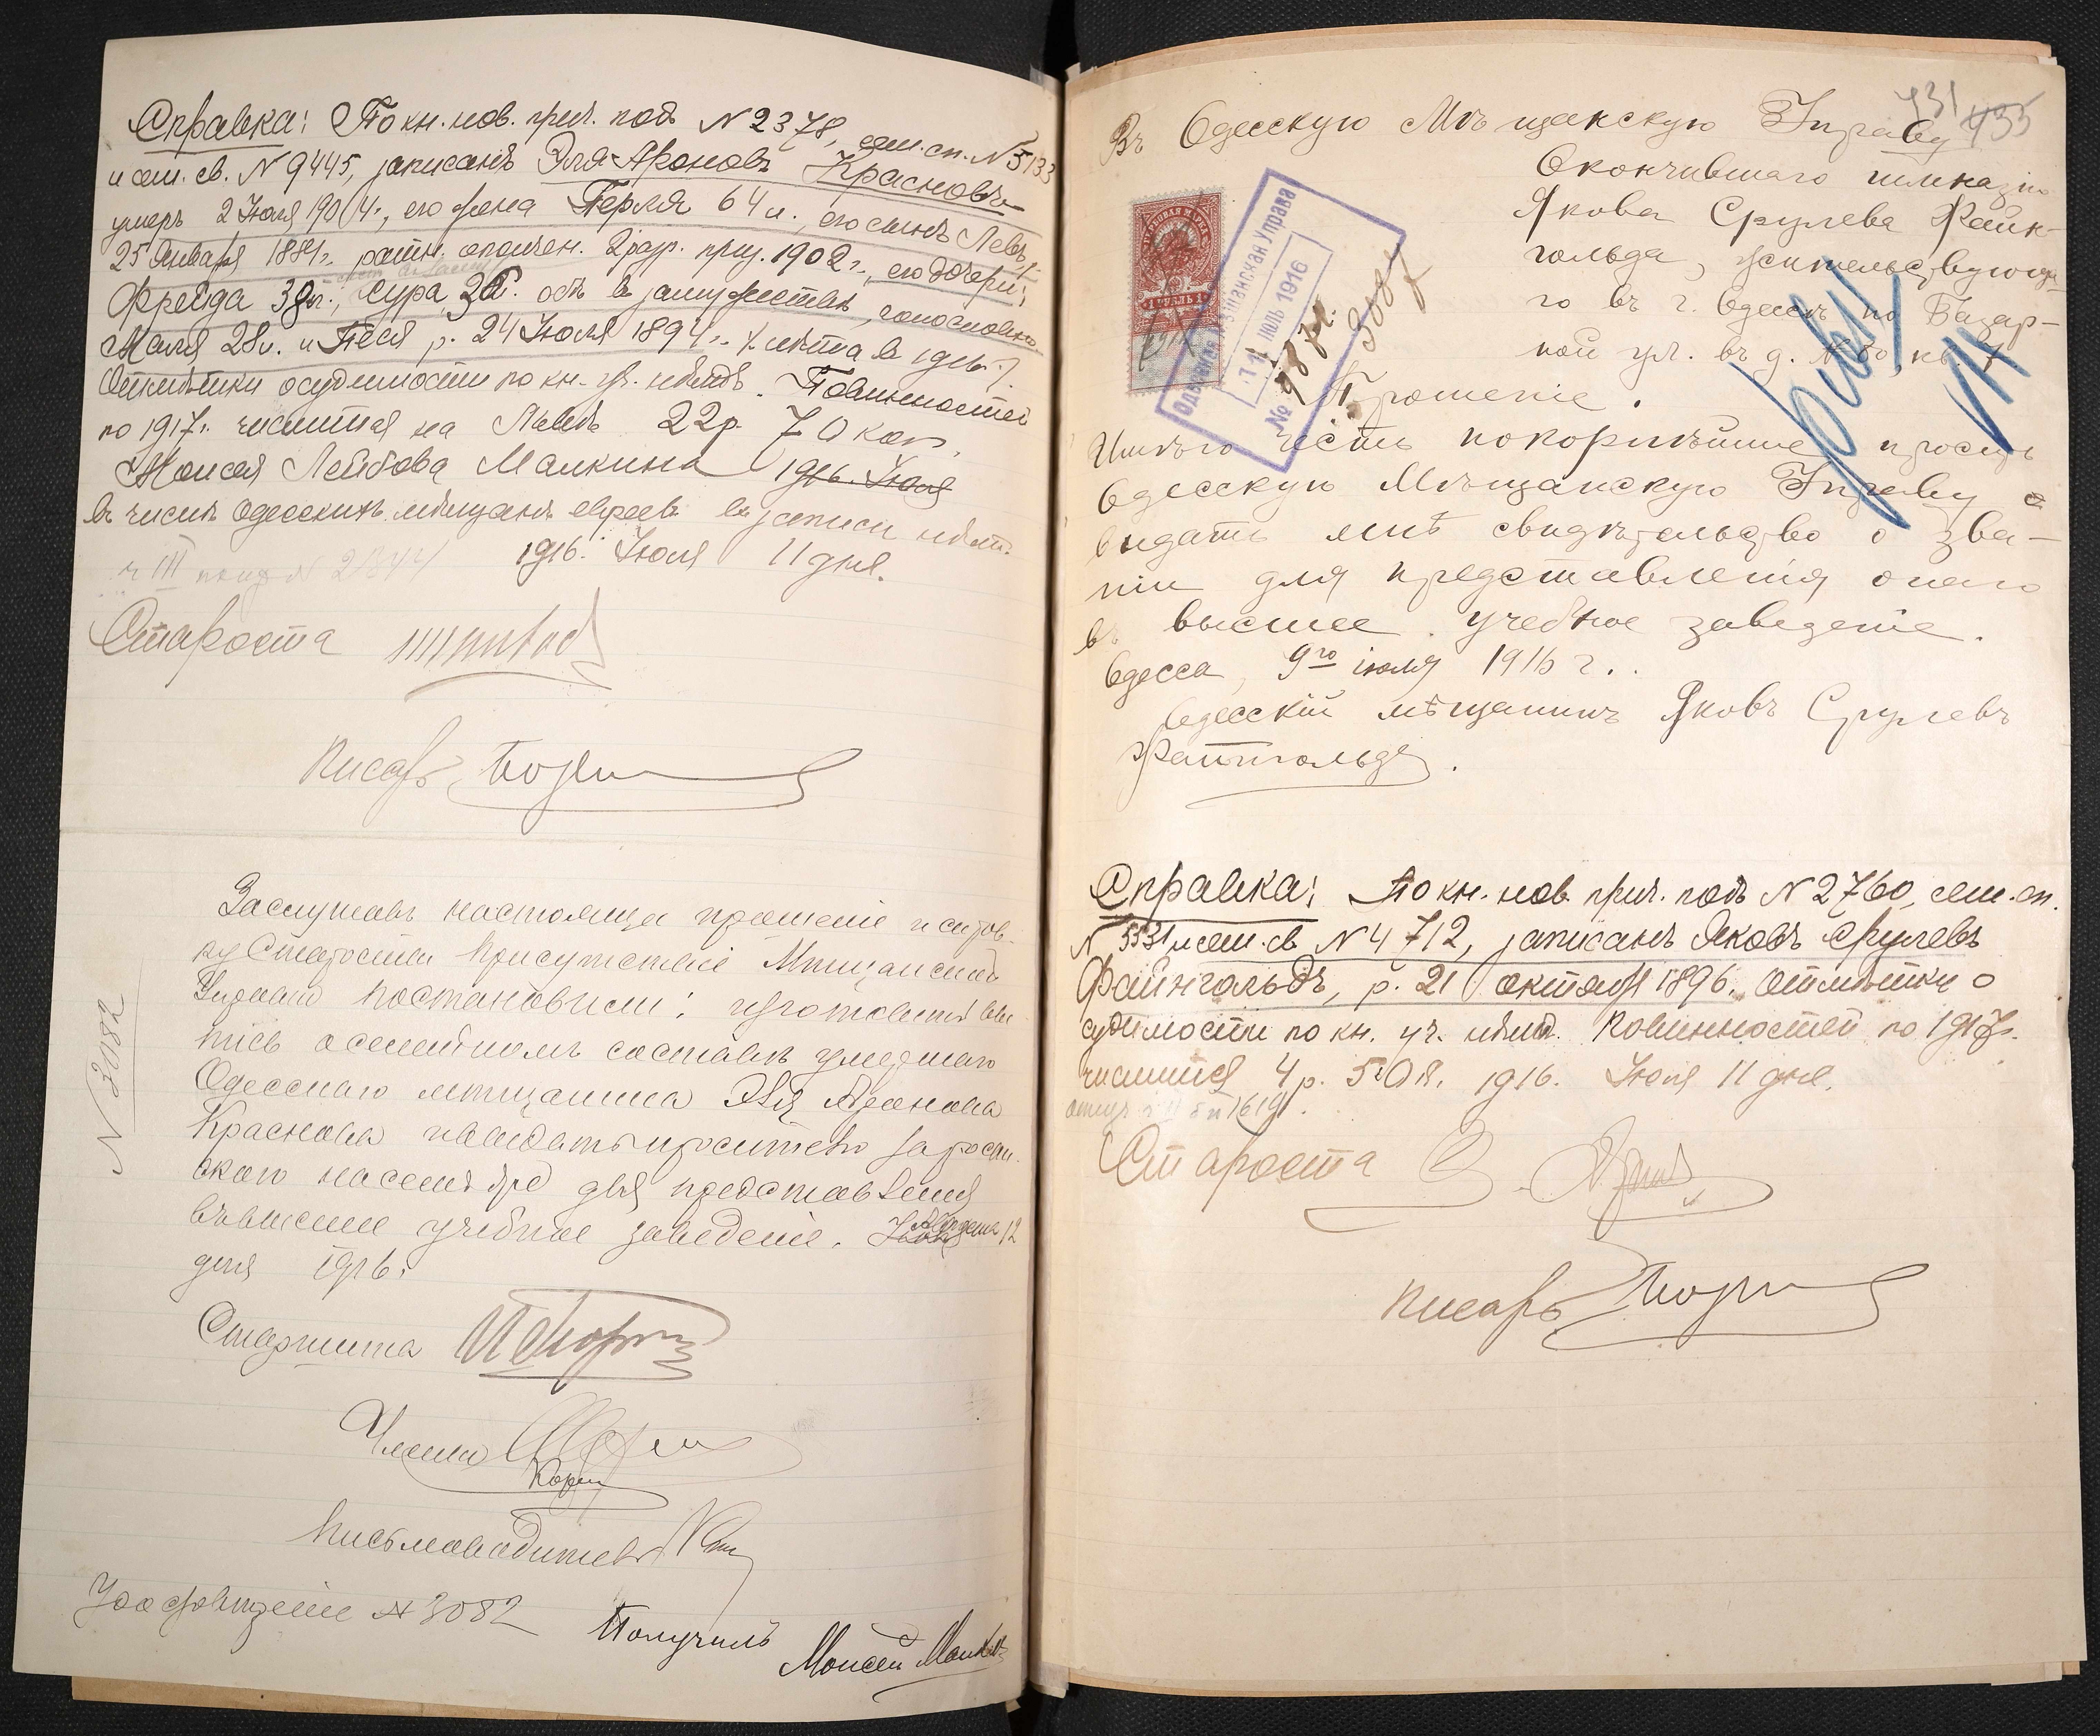 Справка: По кн. нов. прич. подъ N 2378, сем. сп. N 5133
и сем. св. N 9445, записанъ Эля-Ароновъ Красновъ
умеръ 2 Июля 1904 г., его жена Перля 64 л., его сынъ Левъ р.
25 Января 1881 г. ратн. ополчен. 2 разр. приз. 1902 г., его дочери:
Фрейда 38 л., Сура 3 обѣ въ замужествѣ, голословно
Маля 28 л. и Песя р. 24 Июля 1894 г.
Отмѣтки о судимости по кн. уч. нѣтъ. Повинностей
по 1917 г. числится на Львѣ 22 р. 70 коп.
Моисея Лейбова Малкина 1916. Июля
въ числѣ Одесскихъ мѣщанъ евреевъ въ записи нѣтъ.
1916. Июля 11 дня.
Староста
Писарь
Заслушавъ настояще прошеніе и справ-
ку Старосты Присутствіе Мѣщанской
Управы постановили: изготовить вы
пись о семейномъ составѣ умершаго
Одесскаго мѣщанина Эля Аронова
Краснова и выдать просителю
для представленія
въ высшее учебное заведеніе. 12
дня 1916 г.
N 3082
Старшина
Члены
Письмоводитель
Удостовѣреніе N 3082
Получилъ
Моисей Малкинъ
431 435
Въ Одесскую Мѣщанскую Управу
Окончившаго гимназію
Якова Срулева Файн-
гольда, жительствующа-
го въ г. Одессѣ по Базар-
ной ул. въ д. № 80, кв. 7
1 РУБЛЬ 1
Одесская Мѣщанская Управа
11 ІЮЛЬ 1916
№
Прошеніе.
Имѣю честь покорнѣйше просить
Одесскую Мѣщанскую Управу о
выдать мнѣ свидѣтельство о зва-
ніи для представленія онаго
въ высшее учебное заведеніе.
Одесса, 9го іюля 1916 г.
Одесскій мѣщанинъ Яковъ Срулевъ
Файнгольдъ.
Справка: По кн. нов. прич. подъ N 2760, сем. сп.
N 5531 и сем. св. N 4712, записанъ Яковъ Срулевъ
Файнгольдъ, р. 21 октября 1896. Отмѣтки о
судимости по кн. уч. нѣтъ. Повинностей по 1917 г.
числится 4 р. 50 к. 1916. Июля 11 дня.
Староста
Писарь